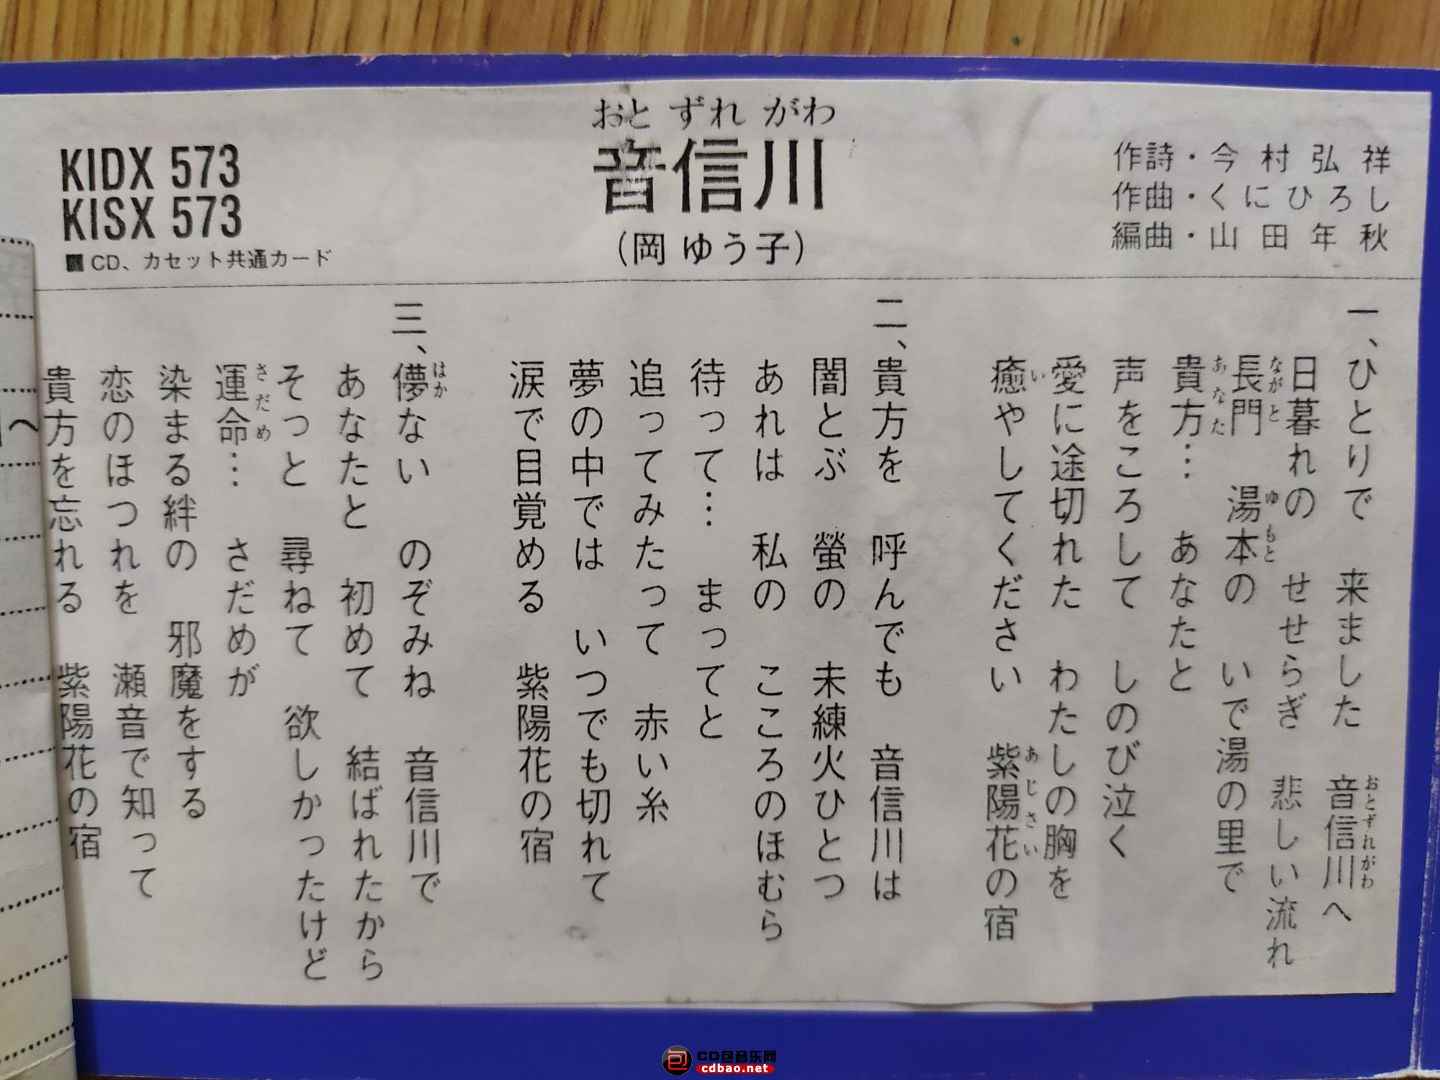 KIDX 573
KISX 573
■CD、カセット共通カード
おとずれがわ
音信川
(岡 ゆう子)
作詩・今村弘祥
作曲・くにひろし
編曲・山田年秋
一、ひとりで 来ました 音信川へ
おとずれがわ
日暮れの せせらぎ 悲しい流れ
長門 湯本の いで湯の里で
ながと ゆもと
貴方… あなたと
あなた
声をころして しのび泣く
愛に途切れた わたしの胸を
癒やしてください 紫陽花の宿
い あじさい
二、貴方を 呼んでも 音信川は
闇とぶ 螢の 未練火ひとつ
あれは 私の こころのほむら
待って… まってと
追ってみたって 赤い糸
夢の中では いつでも切れて
涙で目覚める 紫陽花の宿
三、儚ない のぞみね 音信川で
はか
あなたと 初めて 結ばれたから
そっと 尋ねて 欲しかったけど
運命… さだめが
さだめ
染まる絆の 邪魔をする
恋のほつれを 瀬音で知って
貴方を忘れる 紫陽花の宿
へ
CD包音乐网
cdbao.net